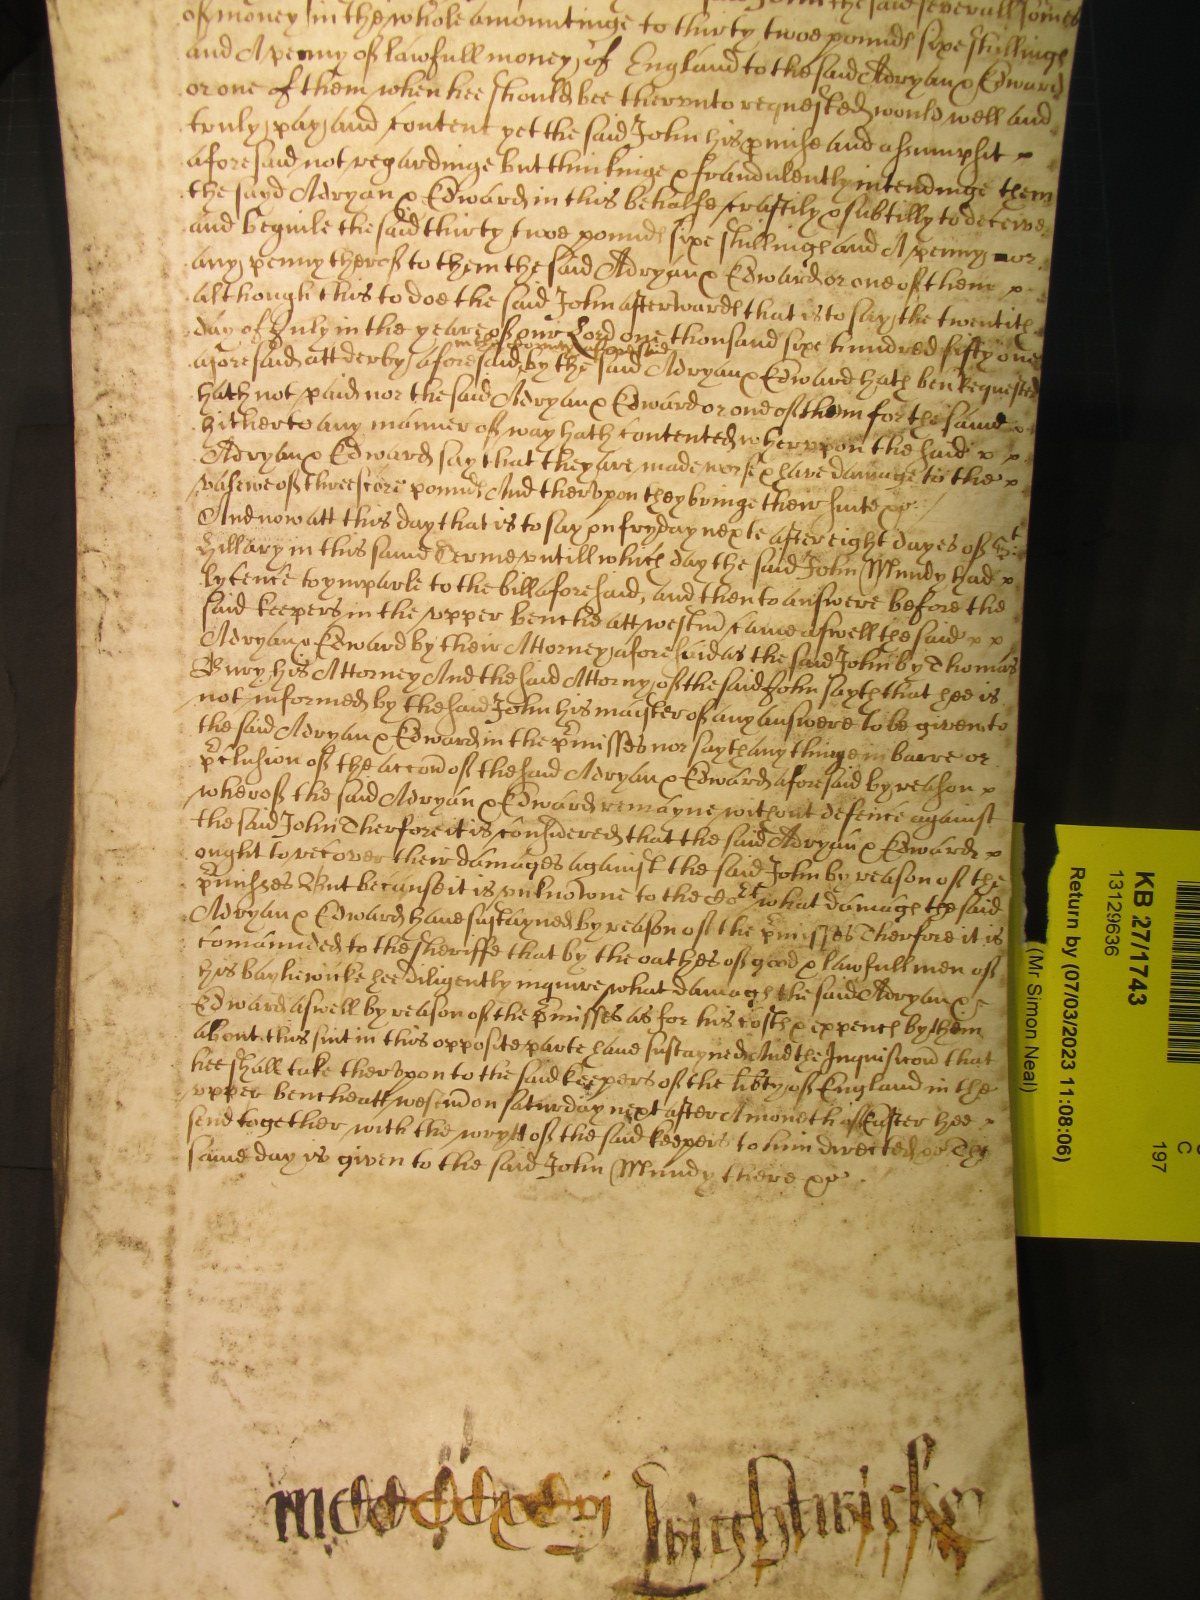 the said severall somes
of money in the whole amountinge to thirty twoe pounds sixe shillings
and A penny of lawfull money of England to the said Adryan & Edward
or one of them when hee should bee therunto requested would well and
truly pay and content yet the said John his pmise and assumpsit
aforesaid not regardinge but thinkinge & fraudulently intendinge them
the sayd Adryan & Edward in this behalfe craftily & subtilly to deceive
and beguile the said thirty twoe pounds sixe shillings and A penny nor
any penny therof to them the said Adryan & Edward or one of them
although this to doe the said John afterwards that is to say the twentith
day of July in the yeare of our Lord one thousand sixe hundred fifty one
in the county aforesaid
aforesaid att derby aforesaid by the said Adryan & Edward hath ben Requested
hath not paid nor the said Adryan & Edward or one of them for the same
hitherto any manner of way hath contented wherupon the said
Adryan & Edward say that they are made worse & have damage to the
valewe of threescore pounds And therupon they bringe their suite &c
And now att this day that is to say on fryday nexte after eight dayes of St
Hillary in this same Terme untill which day the said John Mundy had
lycence to ymparle to the bill aforesaid, and then to answere before the
said keepers in the upper benche att westm came aswell the said
Adryan & Edward by their Attorney aforesaid as the said John by Thomas
Bury his Attorney And the said Attorny of the said John sayth that hee is
not informed by the said John his maister of any answere to be given to
the said Adryan & Edward in the pmisses nor sayth any thinge in barre or
pclusion of the accon of the said Adryan & Edward aforesaid by reason
wherof the said Adryan & Edward remayne without defence against
the said John Therfore it is considered that the said Adryan & Edward
ought to recover their damages against the said John by reason of the
pmisses But because it is unknowne to the Cort what damage the said
Adryan & Edward have sustayned by reason of the pmisses Therfore it is
comannded to the sheriffe that by the oathes of good & lawfull men of
his bayliewicke hee diligently inquire what damage the said Adryan &
Edward aswell by reason of the pmisses as for his costs & expences by them
about this suit in this opposite parte have sustayned And the Inquisicon that
hee shall take therupon to the said keepers of the libty of England in the
upper benche att westm on saturday next after A moneth of Easter hee
send together with the wrytt of the said keepers to him directed &c The
same day is given to the said John Mundy there &c
KB 27/1743
13129636
Return by (07/03/2023 11:08:06)
(Mr Simon Neal)
C
197